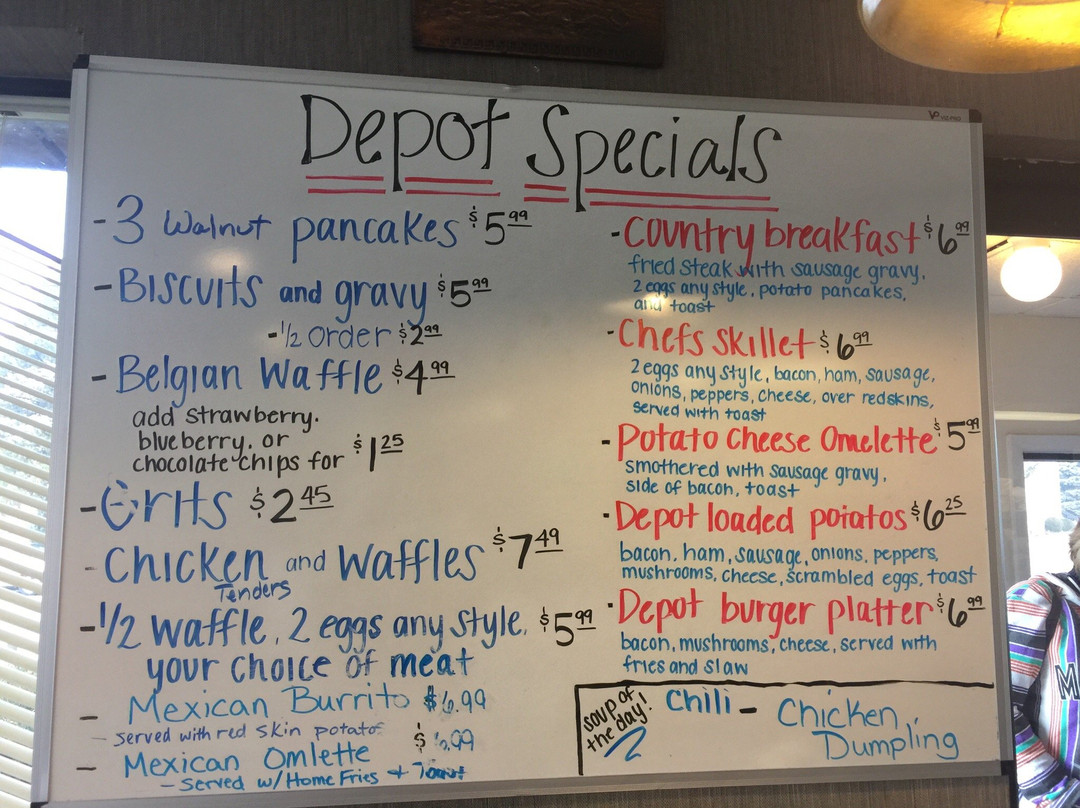 Depot Specials
- 3 Walnut pancakes $5.99
- Biscuits and gravy $5.99
- 1/2 order $2.99
- Belgian Waffle $4.99
add strawberry.
blueberry. or
chocolate chips for $1.25
- Grits $2.45
- Chicken and Waffles $7.49
Tenders
- 1/2 waffle, 2 eggs any style, $5.99
your choice of meat
- Mexican Burrito $6.99
- served with red skin potatos
- Mexican Omlette $6.99
- Served w/Home Fries + Toast
- Country breakfast $6.99
fried steak with sausage gravy,
2 eggs any style, potato pancakes,
and toast
- Chefs Skillet $6.99
2 eggs any style, bacon, ham, sausage,
onions, peppers, cheese, over redskins,
served with toast
- Potato Cheese Omelette $5.99
smothered with sausage gravy,
side of bacon, toast
- Depot loaded potatos $6.25
bacon, ham, sausage, onions, peppers,
mushrooms, cheese, scrambled eggs, toast
- Depot burger platter $6.99
bacon, mushrooms, cheese, served with
fries and slaw
soup of
the day!
Chili - Chicken,
Dumpling
M